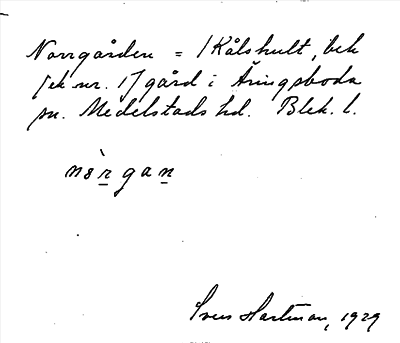 Norrgården = /Kålshult, bek
/ek nr. 1/ gård i Åringsboda
sn. Medelstads hd. Blek. l.
nèrgan
Sven Hartman, 1929